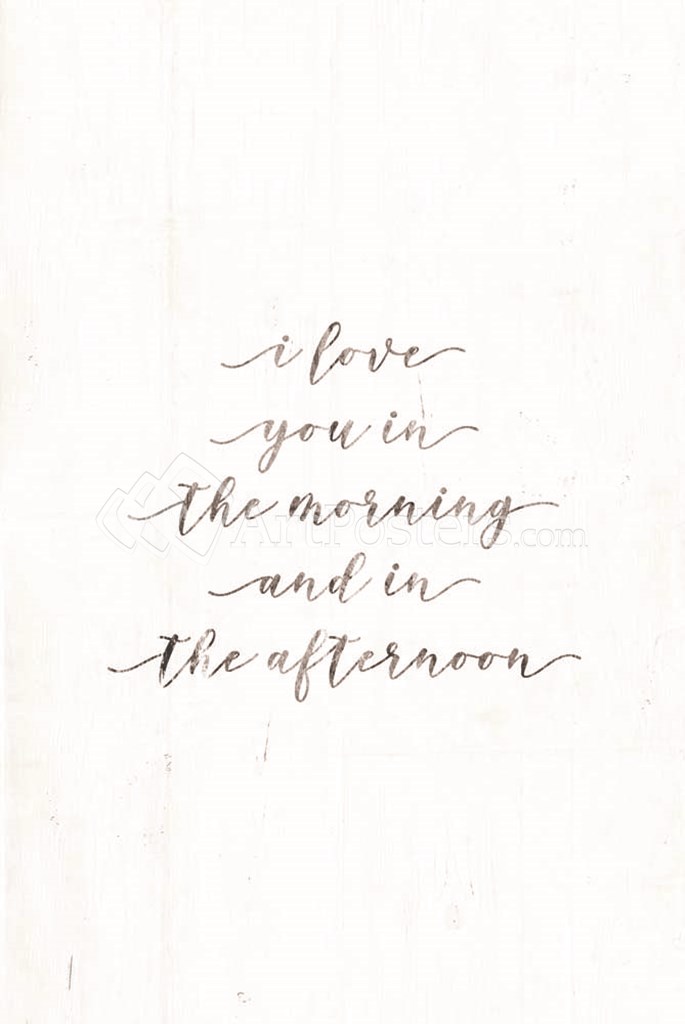 i love
you in
the morning
ArtPosters.com
and in
the afternoon